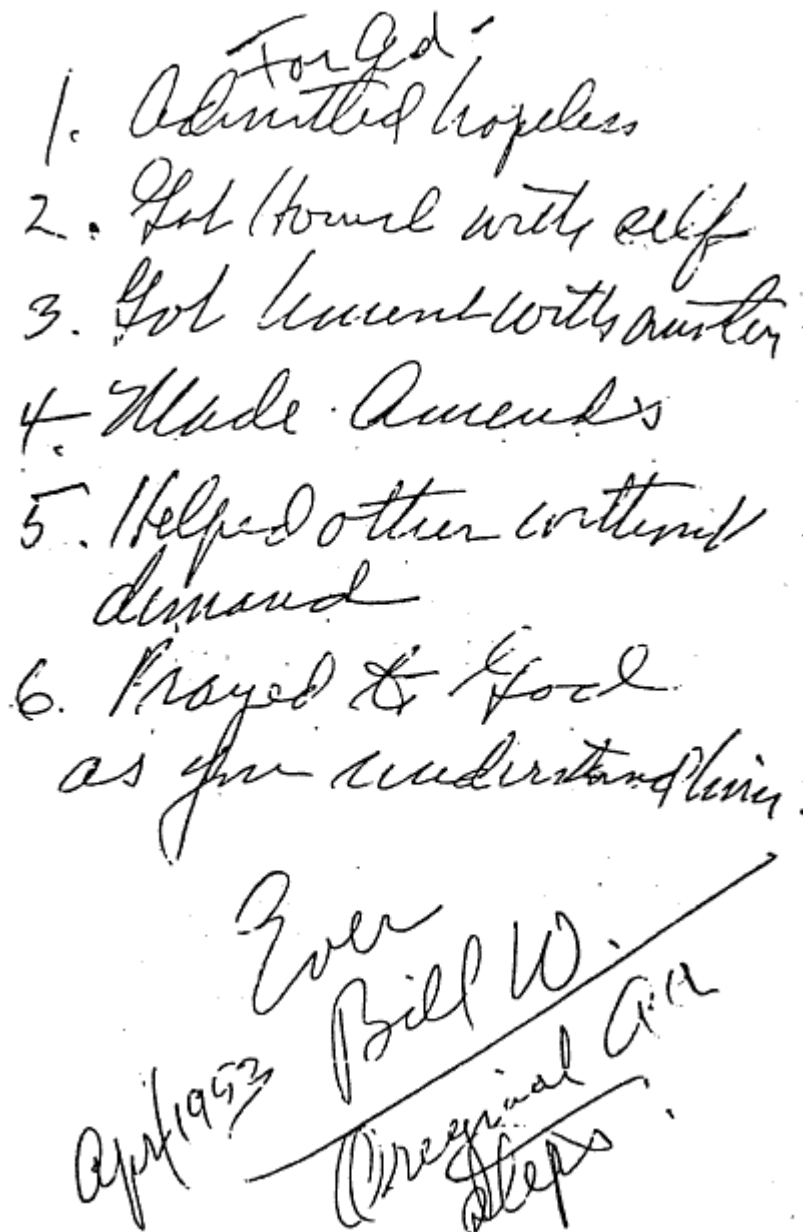 For Ed -
1. Admitted hopeless
2. Got honest with self
3. Got honest with another
4. Made Amends
5. Helped other without
demand
6. Prayed to God
as you understand him.
Ever
Bill W.
Apr/1953
Original A.A.
Steps.